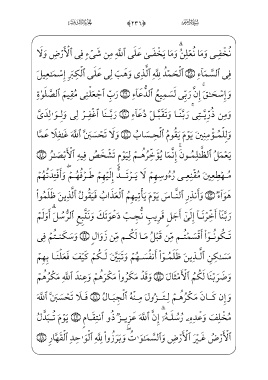 نُخْفِى وَمَا نُعْلِنُ ۗ وَمَا يَخْفَىٰ عَلَى ٱللَّهِ مِن شَىْءٍ فِى ٱلْأَرْضِ وَلَا
فِى ٱلسَّمَآءِ ۝ ٱلْحَمْدُ لِلَّهِ ٱلَّذِى وَهَبَ لِى عَلَى ٱلْكِبَرِ إِسْمَٰعِيلَ
وَإِسْحَٰقَ ۚ إِنَّ رَبِّى لَسَمِيعُ ٱلدُّعَآءِ ۝ رَبِّ ٱجْعَلْنِى مُقِيمَ ٱلصَّلَوٰةِ
وَمِن ذُرِّيَّتِى ۚ رَبَّنَا وَتَقَبَّلْ دُعَآءِ ۝ رَبَّنَا ٱغْفِرْ لِى وَلِوَٰلِدَىَّ
وَلِلْمُؤْمِنِينَ يَوْمَ يَقُومُ ٱلْحِسَابُ ۝ وَلَا تَحْسَبَنَّ ٱللَّهَ غَٰفِلًا عَمَّا
يَعْمَلُ ٱلظَّٰلِمُونَ ۚ إِنَّمَا يُؤَخِّرُهُمْ لِيَوْمٍ تَشْخَصُ فِيهِ ٱلْأَبْصَٰرُ ۝
مُهْطِعِينَ مُقْنِعِى رُءُوسِهِمْ لَا يَرْتَدُّ إِلَيْهِمْ طَرْفُهُمْ ۖ وَأَفْـِٔدَتُهُمْ
هَوَآءٌ ۝ وَأَنذِرِ ٱلنَّاسَ يَوْمَ يَأْتِيهِمُ ٱلْعَذَابُ فَيَقُولُ ٱلَّذِينَ ظَلَمُوا۟
رَبَّنَآ أَخِّرْنَآ إِلَىٰٓ أَجَلٍ قَرِيبٍ نُّجِبْ دَعْوَتَكَ وَنَتَّبِعِ ٱلرُّسُلَ ۗ أَوَلَمْ
تَكُونُوٓا۟ أَقْسَمْتُم مِّن قَبْلُ مَا لَكُم مِّن زَوَالٍ ۝ وَسَكَنتُمْ فِى
مَسَٰكِنِ ٱلَّذِينَ ظَلَمُوٓا۟ أَنفُسَهُمْ وَتَبَيَّنَ لَكُمْ كَيْفَ فَعَلْنَا بِهِمْ
وَضَرَبْنَا لَكُمُ ٱلْأَمْثَالَ ۝ وَقَدْ مَكَرُوا۟ مَكْرَهُمْ وَعِندَ ٱللَّهِ مَكْرُهُمْ
وَإِن كَانَ مَكْرُهُمْ لِتَزُولَ مِنْهُ ٱلْجِبَالُ ۝ فَلَا تَحْسَبَنَّ ٱللَّهَ
مُخْلِفَ وَعْدِهِۦ رُسُلَهُۥٓ ۗ إِنَّ ٱللَّهَ عَزِيزٌ ذُو ٱنتِقَامٍ ۝ يَوْمَ تُبَدَّلُ
ٱلْأَرْضُ غَيْرَ ٱلْأَرْضِ وَٱلسَّمَٰوَٰتُ ۖ وَبَرَزُوا۟ لِلَّهِ ٱلْوَٰحِدِ ٱلْقَهَّارِ ۝